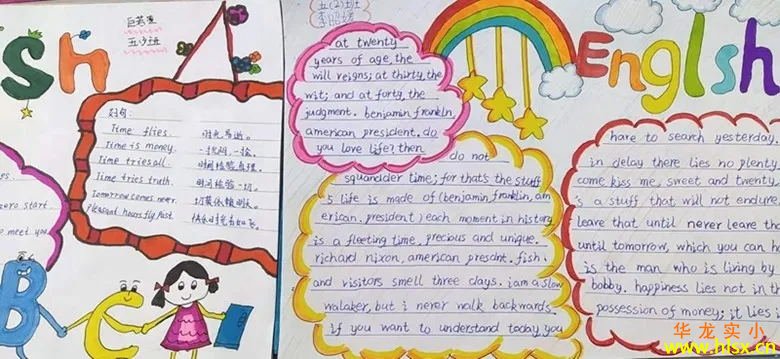 sh
五(3)班
好句:
Time flies. 时光易逝。
Time is money. 一寸光阴,一寸金。
Time tries all. 时间检验真理。
Time tries truth. 时间检验一切。
Tomorrow comes never. 切莫依赖明天。
Pleasant hours fly past.
es.
zero start.
to meet you
Be
五(2)班
at twenty
years of age, the
will reigns; at thirty, the
wit; and at forty, the
judgment. benjamin franklin,
american president. do
you love life? then
do not
squandder time; for that's the stuff
5 life is made of (benjamin, franklin, am
erican. president) each moment in history
is a fleeting time, precious and unique.
richard nixon, american presdnt. fish.
and visitors smell three days. i am a slow
walaker, but i never walk backwards.
if you want to understand today, you
Englsh
hare to search yesterday.
in delay there lies no plenty
come kiss me, sweet and twenty
is a stuff that will not endure
leave that until never leave the
until tomorrow, which you can h
is the man who is living by
bobby. happiness lies not in th
possession of money; it lies i
华龙实小
www.hlsx.cn